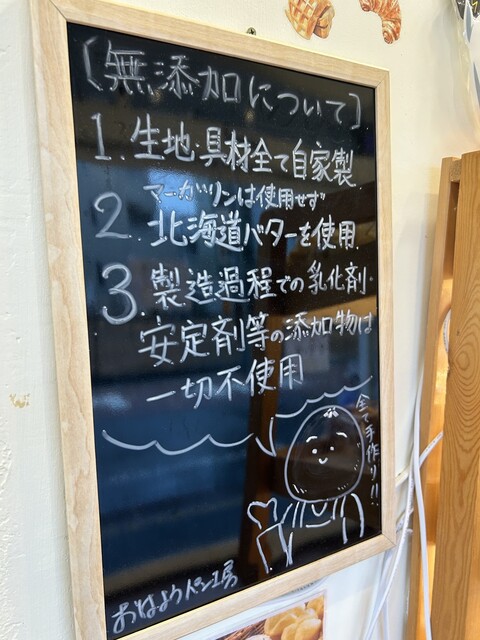 〔無添加について〕
1. 生地・具材全て自家製
マーガリンは使用せず
2. 北海道バターを使用
3. 製造過程での乳化剤・
安定剤等の添加物は
一切不使用
全て手作り!!
おはようパン工房